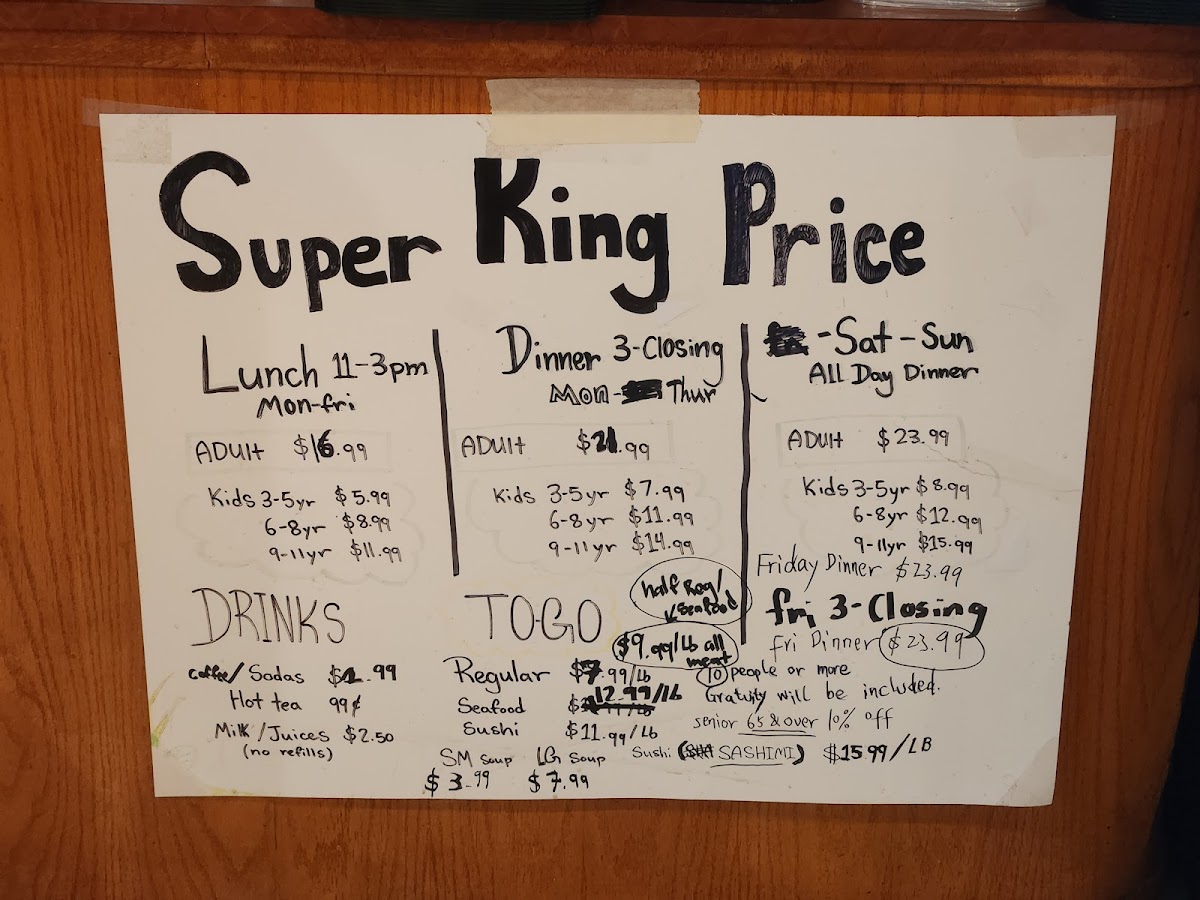 Super King Price
Lunch 11-3pm
Mon-fri
ADUlt $16.99
Kids 3-5yr $5.99
6-8yr $8.99
9-11yr $11.99
Dinner 3-Closing
Mon- Thur
ADUlt $21.99
Kids 3-5yr $7.99
6-8yr $11.99
9-11yr $14.99
-Sat-Sun
All Day Dinner
ADUlt $23.99
Kids 3-5yr $8.99
6-8yr $12.99
9-11yr $15.99
Friday Dinner $23.99
fri 3-Closing
fri Dinner $23.99
10 people or more
Gratuity will be included.
senior 65 & over 10% off
Sushi (SASHIMI) $15.99/LB
DRINKS
coffee/Sodas .99
Hot tea 99¢
Milk/Juices $2.50
(no refills)
TO-GO
half Reg/
Seafood
$9.99/Lb all
meat
Regular $7.99/Lb
12.99/lb
Seafood
Sushi $11.99/Lb
SM Soup LG Soup
$3.99 $7.99